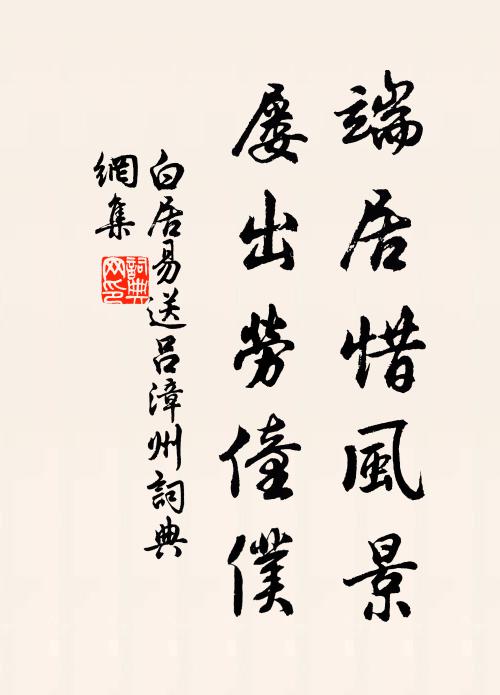 端居惜風景
屢出勞僮僕
白居易送呂漳州詞典
網集
詞典
网印